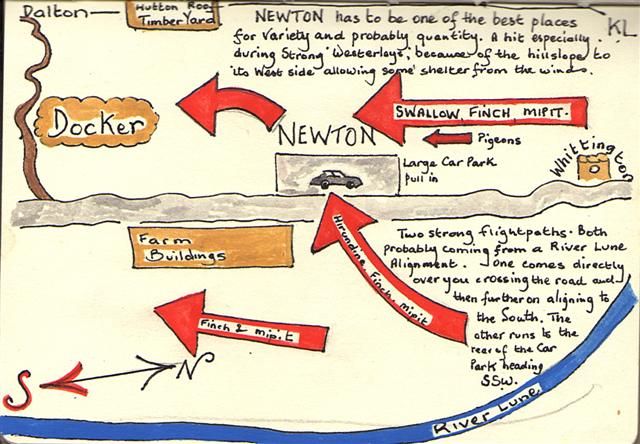 Dalton
Hutton Roof
Timber Yard
NEWTON has to be one of the best places
for Variety and probably quantity. A hit especially
during Strong Westerleys, because of the hillslope to
its West side allowing some shelter from the winds.
KL
Docker
SWALLOW, FINCH, MIPIT.
Pigeons
NEWTON
Large Car Park
pull in
Whittington
Farm
Buildings
Hirundine, Finch, mipit
Two strong flightpaths. Both
probably coming from a River Lune
Alignment. One comes directly
over you crossing the road and
then further on aligning to
the South. The
other runs to the
rear of the Car
Park heading
SSW.
Finch & mipit
S
N
River Lune